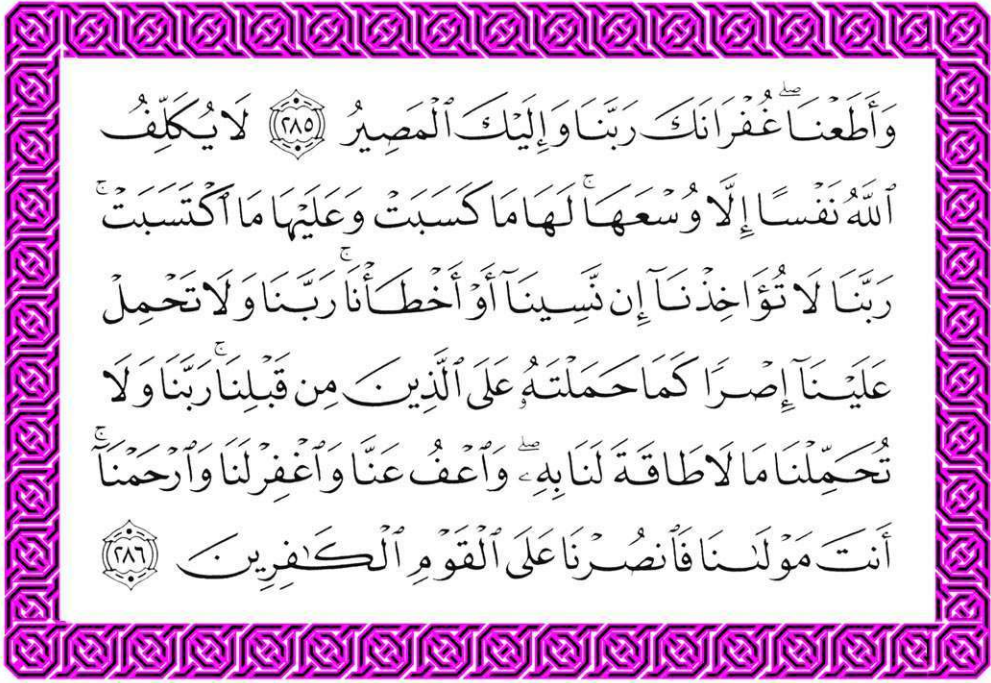 وَأَطَعْنَا ۖ غُفْرَانَكَ رَبَّنَا وَإِلَيْكَ ٱلْمَصِيرُ ٢٨٥ لَا يُكَلِّفُ
ٱللَّهُ نَفْسًا إِلَّا وُسْعَهَا ۚ لَهَا مَا كَسَبَتْ وَعَلَيْهَا مَا ٱكْتَسَبَتْ ۚ
رَبَّنَا لَا تُؤَاخِذْنَآ إِن نَّسِينَآ أَوْ أَخْطَأْنَا ۚ رَبَّنَا وَلَا تَحْمِلْ
عَلَيْنَآ إِصْرًا كَمَا حَمَلْتَهُۥ عَلَى ٱلَّذِينَ مِن قَبْلِنَا ۚ رَبَّنَا وَلَا
تُحَمِّلْنَا مَا لَا طَاقَةَ لَنَا بِهِۦ ۖ وَٱعْفُ عَنَّا وَٱغْفِرْ لَنَا وَٱرْحَمْنَآ ۚ
أَنتَ مَوْلَىٰنَا فَٱنصُرْنَا عَلَى ٱلْقَوْمِ ٱلْكَٰفِرِينَ ٢٨٦